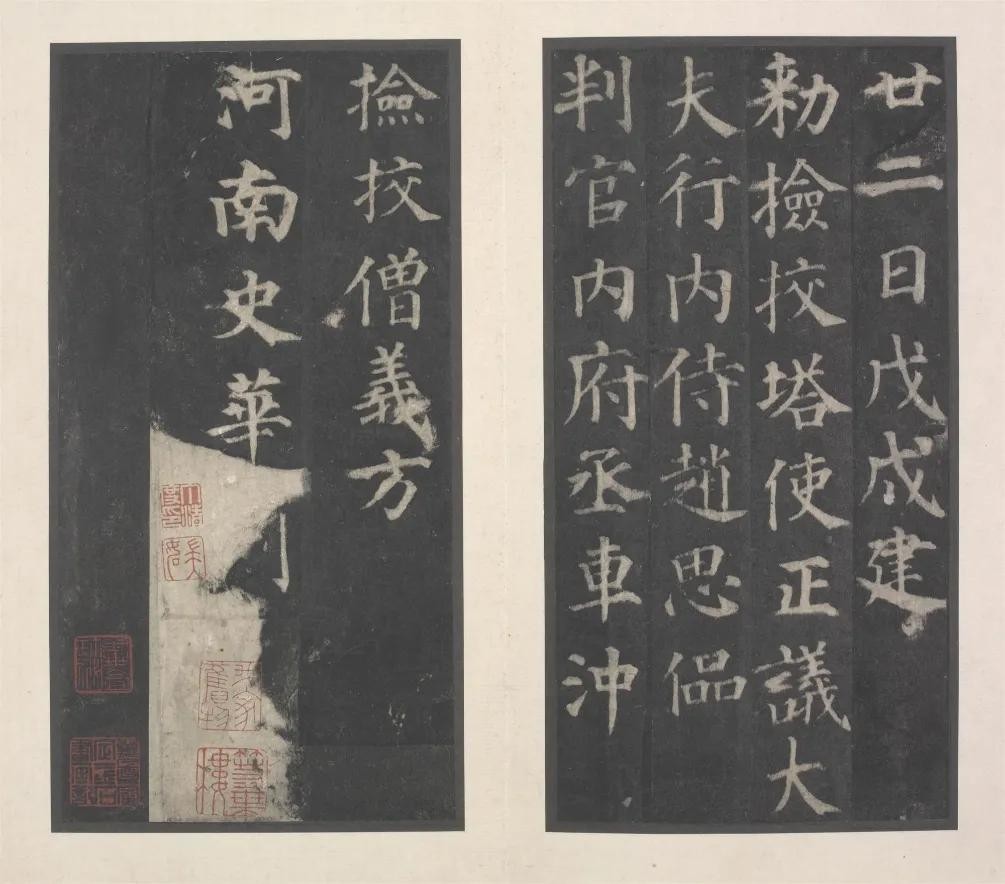 廿二日戊戌建
勑撿挍塔使正議大
夫行内侍趙思偘
判官内府丞車沖
撿挍僧義方
河南史華刻